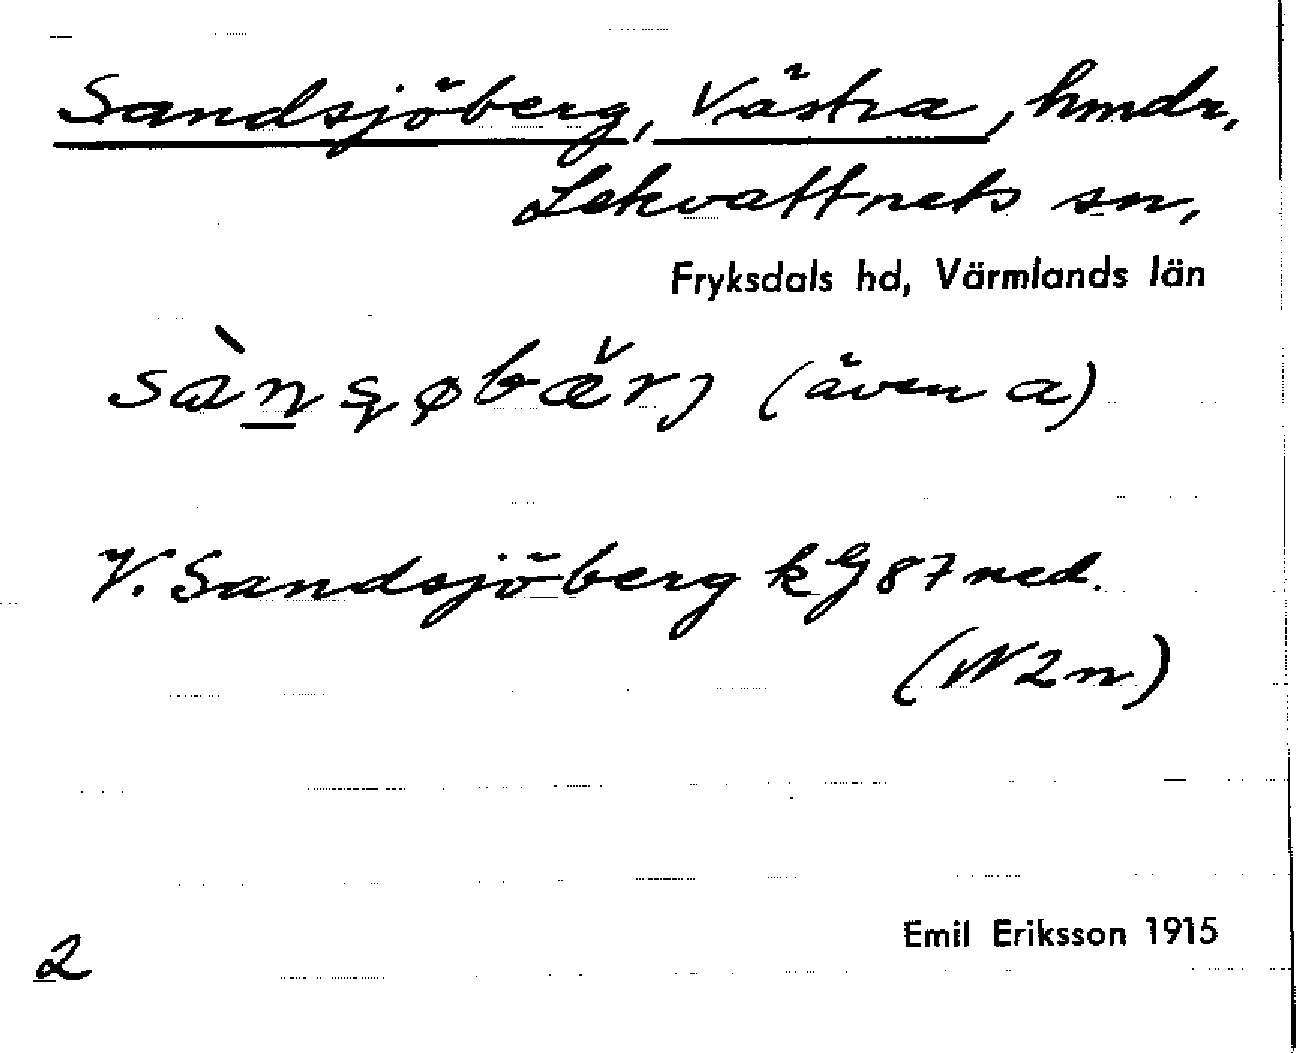 Sandsjöberg, Västra, hmdr,
Lekvattnets sn,
Fryksdals hd, Värmlands län
(även a)
V. Sandsjöberg k G 87 ned.
(N2n)
Emil Eriksson 1915
2